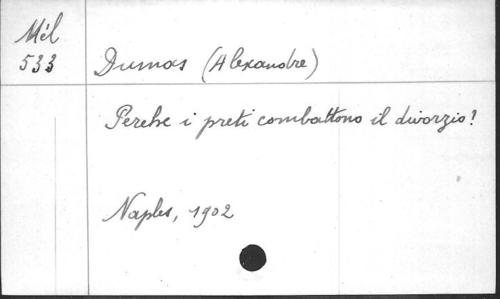 Mél
533
Dumas (Alexandre)
Perche i preti combattono il divorzio!
Naples, 1902